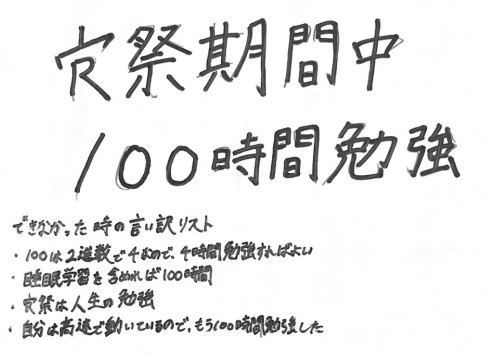 穴祭期間中
100時間勉強
できなかった時の言い訳リスト
・100は2進数で4なので、4時間勉強すればよい
・睡眠学習を含めれば100時間
・穴祭は人生の勉強
・自分は高速で動いているので、もう100時間勉強した